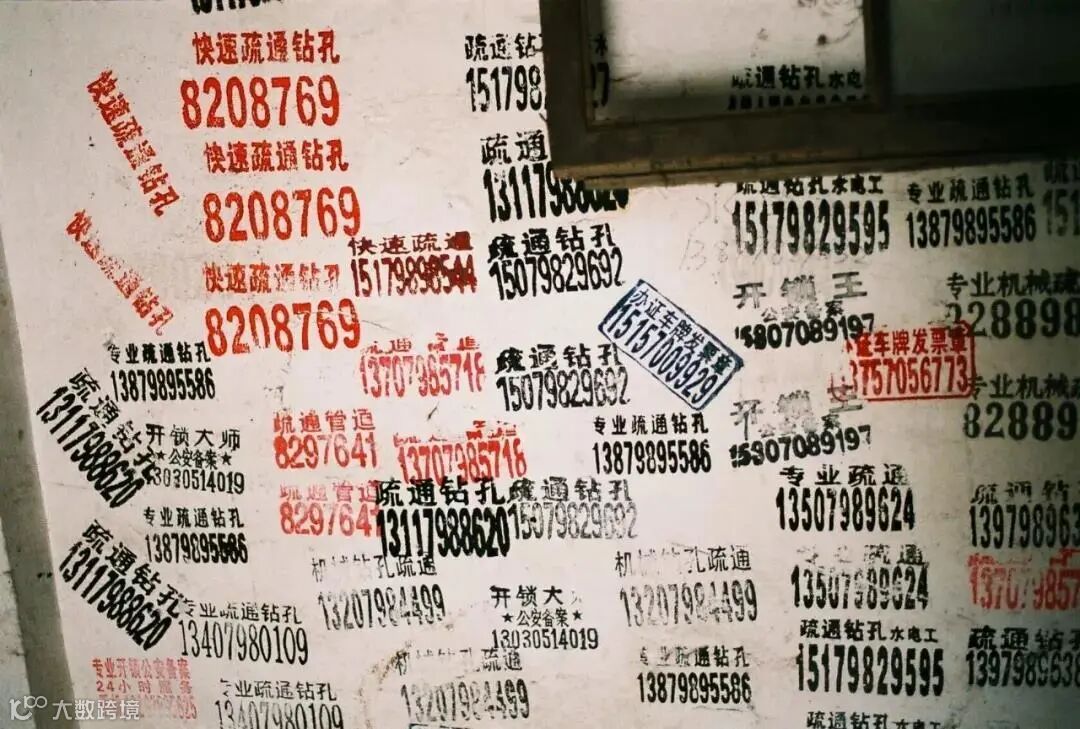 快速疏通钻孔
8208769
快速疏通钻孔
8208769
快速疏通钻孔
8208769
快速疏通钻孔
快速疏通钻孔
疏通钻
疏通钻孔水电工
疏通
13117988620
快速疏通
15179898544
疏通钻孔
15079829692
疏通钻孔水电工
15179829595
专业疏通钻孔
13879895586
开锁王
公安备案
15807089197
专业机械疏
办证车牌发票章
15157009929
证车牌发票章
13757056773
专业疏通钻孔
13879895586
13707985718
疏通钻孔
15079829692
专业机械疏
828898
疏通钻孔
13117988620
开锁大师
★公安备案★
13030514019
疏通管道
8297641
13707985718
专业疏通钻孔
13879895586
开锁王
公安备案
15807089197
专业疏通
13507989624
疏通管道
8297641
疏通钻孔
13117988620
疏通钻孔
15079829692
专业疏通钻孔
13879895586
疏通钻孔
13117988620
机械钻孔疏通
13207984499
开锁大
★公安备案★
13030514019
机械钻孔疏通
13207984499
专业疏通
13507989624
专业疏通钻孔
13407980109
疏通钻孔水电工
15179829595
专业开锁公安备案
24小时服务
专业疏通钻孔
13407980109
机械钻孔疏通
13207984499
专业疏通钻孔
13879895586
疏通钻孔水电工
大数跨境